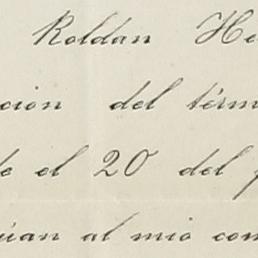 Roldan He
ción del térm
de el 20 del p
úan al mio com